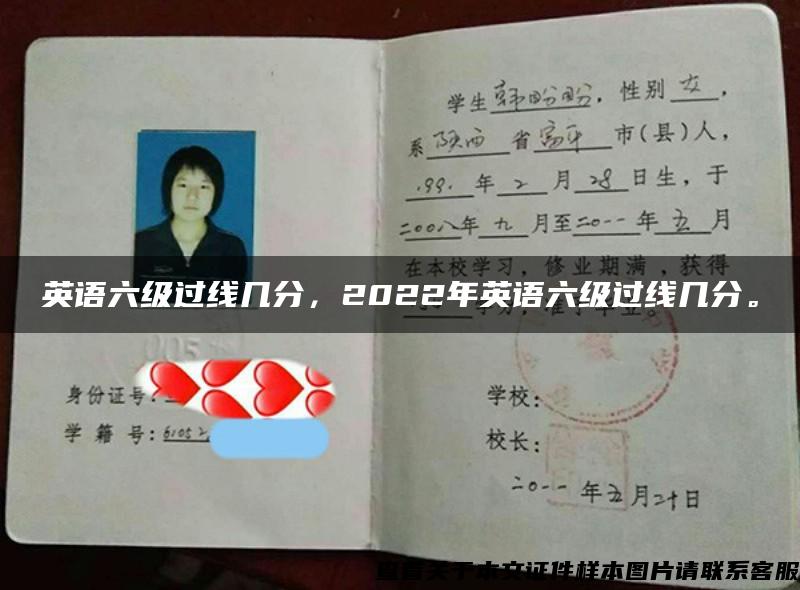 学生韩盼盼，性别女，
系陕西省富平市(县)人，
1991年2月28日生，于
二00八年九月至二0一一年五月
在本校学习，修业期满，获得
英语六级过线几分，2022年英语六级过线几分。
学分，准予毕业。
身份证号：
学籍号：61052
学校：
校长：
二0一一年五月二十日
查看关于本文证件样本图片请联系客服